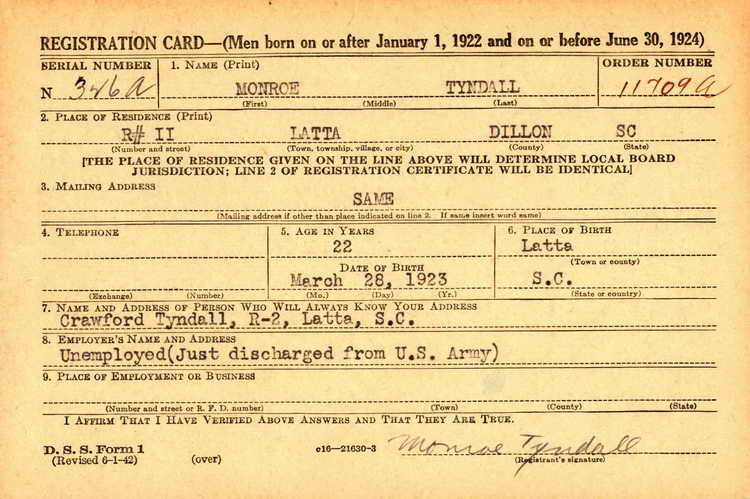 REGISTRATION CARD—(Men born on or after January 1, 1922 and on or before June 30, 1924)
SERIAL NUMBER 1. NAME (Print) ORDER NUMBER
N 346A MONROE TYNDALL 11709A
(First) (Middle) (Last)
2. PLACE OF RESIDENCE (Print)
R# II LATTA DILLON SC
(Number and street) (Town, township, village, or city) (County) (State)
[THE PLACE OF RESIDENCE GIVEN ON THE LINE ABOVE WILL DETERMINE LOCAL BOARD
JURISDICTION; LINE 2 OF REGISTRATION CERTIFICATE WILL BE IDENTICAL]
3. MAILING ADDRESS
SAME
(Mailing address if other than place indicated on line 2. If same insert word same)
4. TELEPHONE 5. AGE IN YEARS 6. PLACE OF BIRTH
22 Latta
(Town or county)
DATE OF BIRTH
March 28, 1923 S.C.
(Exchange) (Number) (Mo.) (Day) (Yr.) (State or country)
7. NAME AND ADDRESS OF PERSON WHO WILL ALWAYS KNOW YOUR ADDRESS
Crawford Tyndall, R-2, Latta, S.C.
8. EMPLOYER'S NAME AND ADDRESS
Unemployed(Just discharged from U.S. Army)
9. PLACE OF EMPLOYMENT OR BUSINESS
(Number and street or R. F. D. number) (Town) (County) (State)
I AFFIRM THAT I HAVE VERIFIED ABOVE ANSWERS AND THAT THEY ARE TRUE.
D. S. S. Form 1 c16—21630-3 Monroe Tyndall
(Revised 6-1-42) (over) (Registrant's signature)